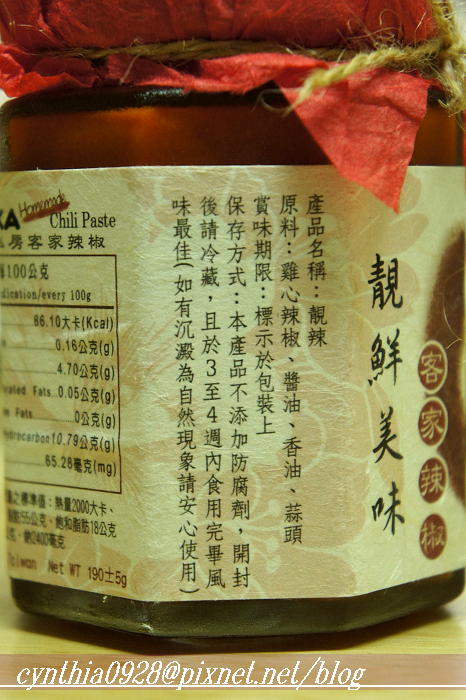 KA Homemade
Chili Paste
房客家辣椒
100公克
every 100g
86.10大卡(Kcal)
0.16公克(g)
4.70公克(g)
Fats..0.05公克(g)
Fats 0公克(g)
10.79公克(g)
65.28毫克(mg)
量之標準值：熱量2000大卡、
55公克、飽和脂肪18公克
鈉2400毫克
Taiwan Net WT 190±5g
產品名稱：靚辣
原料：雞心辣椒、醬油、香油、蒜頭
賞味期限：標示於包裝上
保存方式：本產品不添加防腐劑，開封
後請冷藏，且於3至4週內食用完畢風
味最佳(如有沉澱為自然現象請安心使用)
靚鮮美味
客家辣椒
cynthia0928@pixnet.net/blog